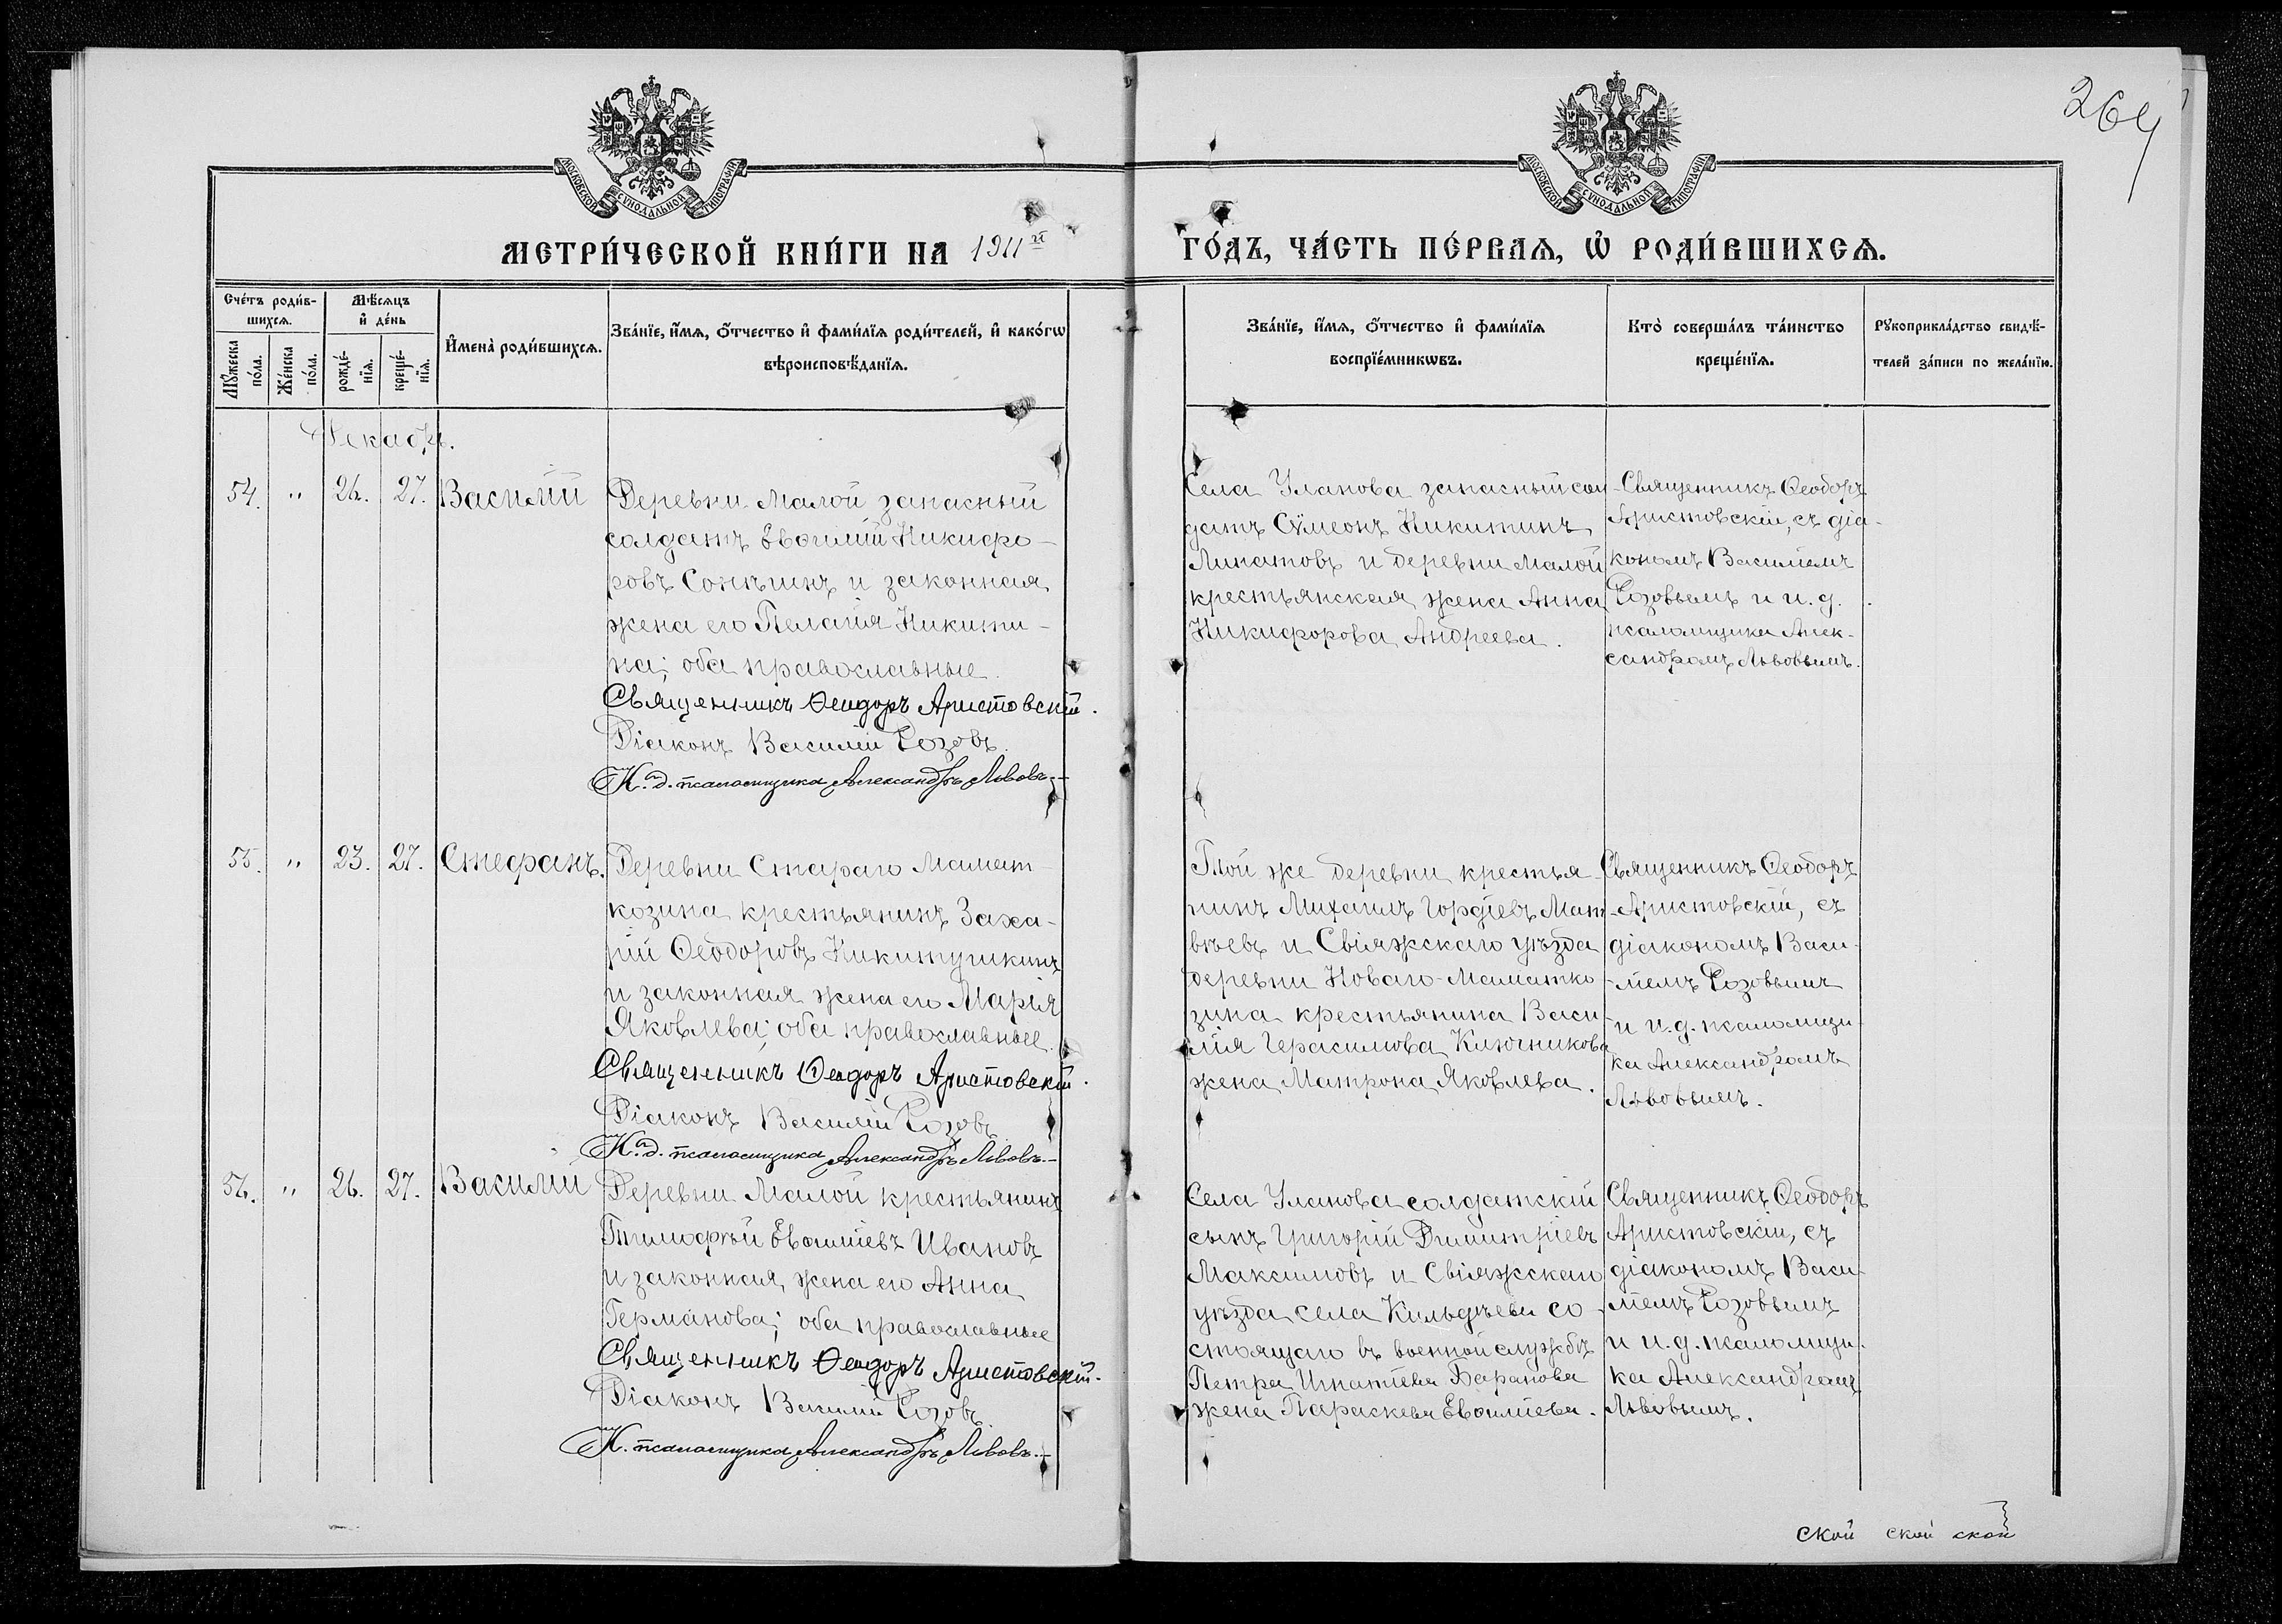 264
МОСКОВСКОЙ СѴНОДАЛЬНОЙ ТИПОГРАФІИ
МОСКОВСКОЙ СѴНОДАЛЬНОЙ ТИПОГРАФІИ
МЕТРИ́ЧЕСКОЙ КНИ́ГИ НА 1911й ГО́ДЪ, ЧА́СТЬ ПЕ́РВАЯ, Ѡ҆ РОДИ́ВШИХСЯ.
Сче́тъ роди́в-
шихся.
Мꙋ́жеска
по́ла.
Же́нска
по́ла.
Мѣ́сяцъ
и҆ де́нь
рожде́-
нїя.
креще́-
нїя.
И҆мена̀ роди́вшихся.
Зва́нїе, и҆́мя, о҆́тчество и҆ фами́лїя роди́телей, и҆ како́гѡ
вѣроисповѣ́данїя.
Зва́нїе, и҆́мя, о҆́тчество и҆ фами́лїя
воспрїе́мникѡвъ.
Кто̀ соверша́лъ та́инство
креще́нїя.
Рꙋкоприкла́дство свидѣ́-
телей за́писи по жела́нїю.
Декабрь.
54. " 26. 27. Василій
Деревни Малой запасный
солдатъ Евѳимій Никифо-
ровъ Сонюшинъ и законная
жена его Пелагія Никити-
на; оба православные.
Священникъ Ѳеодоръ Аристовскій.
Діаконъ Василій Розовъ.
И. д. псаломщика Александръ Львовъ.
Села Уланова запасный сол-
датъ Сѵмеонъ Никитинъ
Липатовъ и деревни Малой
крестьянская жена Анна
Никифорова Андреева.
Священникъ Ѳеодоръ
Аристовскій, съ діа-
кономъ Василіемъ
Розовымъ и и. д.
псаломщика Алек-
сандромъ Львовымъ.
55. " 23. 27. Стефанъ.
Деревни Стараго Мамат-
козина крестьянинъ Заха-
рій Ѳеодоровъ Никитушкинъ
и законная жена его Марія
Яковлева; оба православные.
Священникъ Ѳеодоръ Аристовскій.
Діаконъ Василій Розовъ
И. д. псаломщика Александръ Львовъ.
Той же деревни крестья-
нинъ Михаилъ Гордіевъ Мат-
вѣевъ и Свіяжскаго уѣзда
деревни Новаго-Маматко
зина крестьянина Васи-
лія Герасимова Ключникова
жена Матрона Яковлева.
Священникъ Ѳеодоръ
Аристовскій, съ
діакономъ Васи-
ліемъ Розовымъ
и и. д. псаломщи-
ка Александромъ
Львовымъ.
56. " 26. 27. Василій
Деревни Малой крестьянинъ
Тимоѳей Евѳиміевъ Ивановъ
и законная жена его Анна
Германова; оба православные
Священникъ Ѳеодоръ Аристовскій.
Діаконъ Василій Розовъ.
И. псаломщика Александръ Львовъ.
Села Уланова солдатскій
сынъ Григорій Димитріевъ
Максимовъ и Свіяжскаго
уѣзда села Кильдѣева со-
стоящаго въ военной службѣ
Петра Игнатіева Баранова
жена Параскева Евѳиміева.
Священникъ Ѳеодоръ
Аристовскій, съ
діакономъ Васи-
ліемъ Розовымъ
и и. д. псаломщи-
ка Александромъ
Львовымъ.
ской ской ской